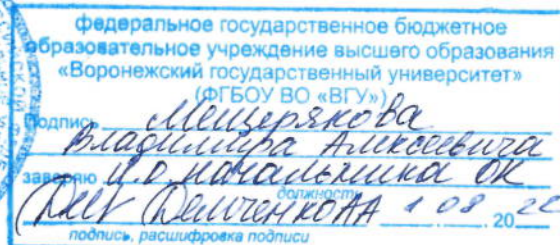 федеральное государственное бюджетное
образовательное учреждение высшего образования
«Воронежский государственный университет»
(ФГБОУ ВО «ВГУ»)
Подпись Мещерякова
Владимира Алексеевича
заверяю и.о. начальника ОК
должность
Демченко АА 1 08 20
подпись, расшифровка подписи